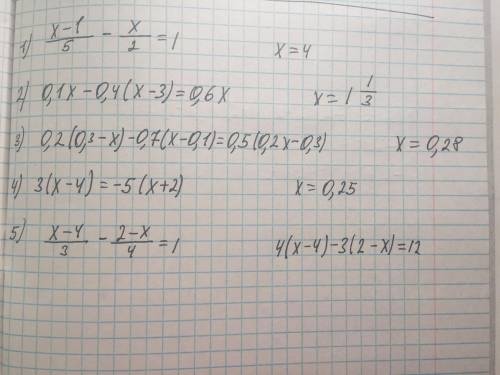 1) (x-1)/5 - x/2 = 1 x = 4
2) 0,1x - 0,4(x-3) = 0,6x x = 1 1/3
3) 0,2(0,3-x) - 0,7(x-0,1) = 0,5(0,2x-0,3) x = 0,28
4) 3(x-4) = -5(x+2) x = 0,25
5) (x-4)/3 - (2-x)/4 = 1 4(x-4) - 3(2-x) = 12